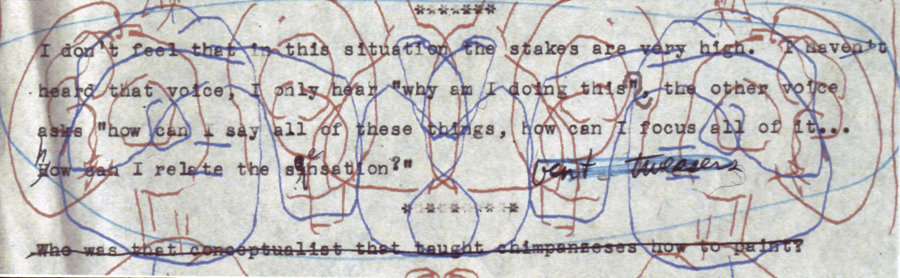 *******
I don't feel that in this situation the stakes are very high. I haven't
heard that voice, I only hear "why am I doing this", the other voice
asks "how can I say all of these things, how can I focus all of it...
How can I relate the sensation?" bent tweezers
*********
Who was that conceptualist that taught chimpanzeses how to paint?